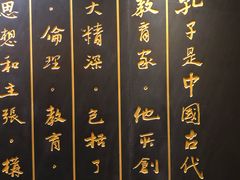 孔子是中國古代
教育家。他所創
大精深。包括了
。倫理。教育。
思想和主張。構